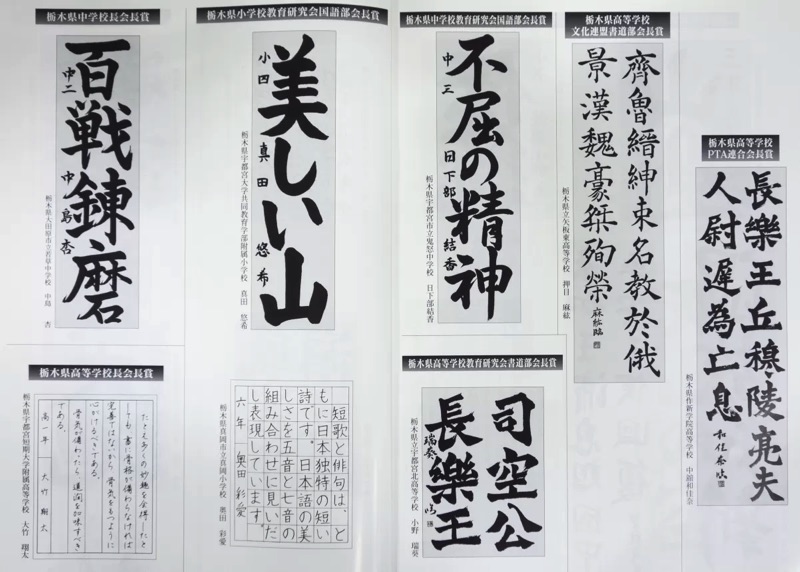 栃木県中学校長会長賞
百戦錬磨
中二 中島 杏
栃木県大田原市立若草中学校 中島 杏
栃木県小学校教育研究会国語部会長賞
美しい山
小四 真田 悠希
栃木県宇都宮大学共同教育学部附属小学校 真田 悠希
栃木県中学校教育研究会国語部会長賞
不屈の精神
中三 日下部 結香
栃木県宇都宮市立鬼怒中学校 日下部結香
栃木県高等学校
文化連盟書道部会長賞
齊魯縉紳束名教於俄
景漢魏豪桀殉榮
麻紘臨
栃木県立矢板東高等学校 押目 麻紘
栃木県高等学校
PTA連合会長賞
長樂王丘穆陵亮夫
人尉遲為亡息
和佳奈臨
栃木県作新学院高等学校 中額和佳奈
栃木県高等学校長会長賞
たとえ多くの妙趣を会得したと
しても、書に骨格が備わらなければ
完善ではないから、骨気をもつように
心がけるべきである。
骨気が備わったら、遒潤を加味すべき
である。
高一年 大竹 翔太
栃木県宇都宮短期大学附属高等学校 大竹 翔太
短歌と俳句は、と
もに日本独特の短い
詩です。日本語の美
しさを五音と七音の
組み合わせに見いだ
し表現しています。
六年 奥田 彩愛
栃木県真岡市立真岡小学校 奥田 彩愛
栃木県高等学校教育研究会書道部会長賞
司空公
長樂王
瑞葵臨
栃木県立宇都宮北高等学校 小野 瑞葵